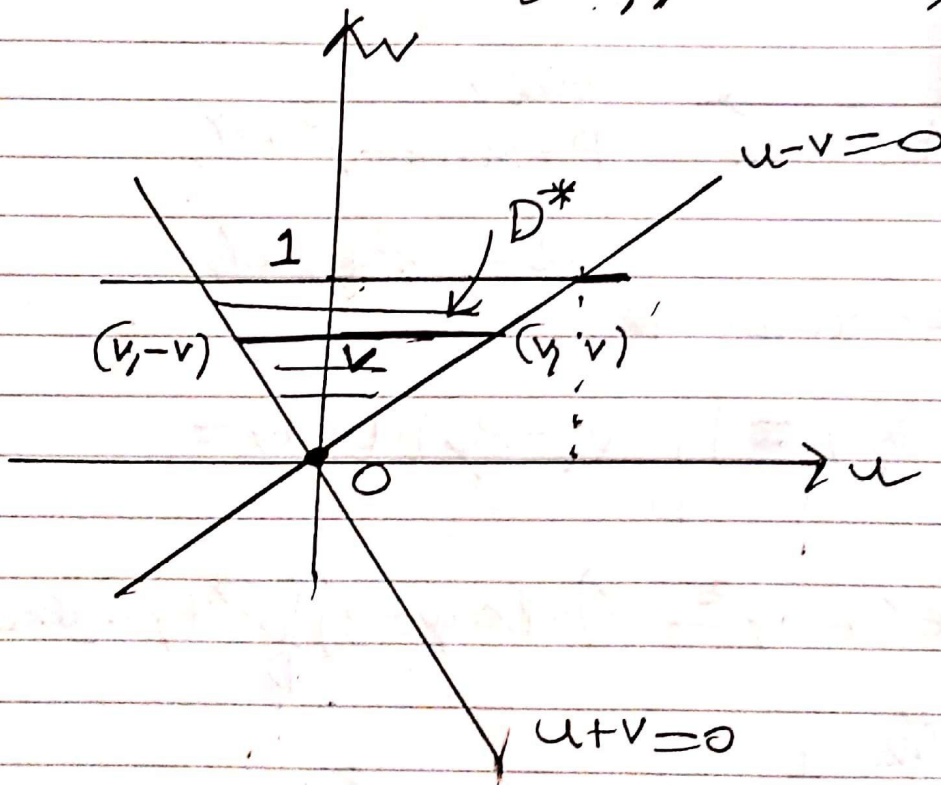 v
u-v=0
D*
1
(v,-v)
v
(v, v)
0
u
u+v=0